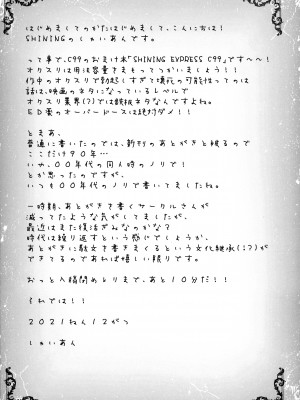 はじめましてのかたはじめまして、こんにちは!
SHININGのしゃいあんです。
って事で、C99のおまけ本「SHINING EXPRESS C99」です〜〜!
オクスリは用法容量きまもってつかいましょう!!
作中のオクスリで勃起しすぎて壊死の可能性ってのは
話は、映画のネタになっているレベルで
オクスリ業界(?)では鉄板ネタなんですよね。
ED薬のオーバードースは絶対ダメ!!
とまあ、
普通に書いたのでは、新刊のあがきと被るので
ここだけ90年…
いや、00年代の同人時のノリで!
とか思ったのですが、
いつも00年代のノリで書いてましたね。
一時期、あとがきを書くサークルさんが
減ってたような気がしてましたが、
最近はまた復活ぎみなのかな?
時代は繰り返すという感じでしょうか、
あとがきに駄文を書きまくるという文化継承(!?)が
できてるのであれば嬉しい限りです。
おっと入稿閉めとりまで、あと10分だ!!
それでは!!
2021ねん12がつ
しゃいあん